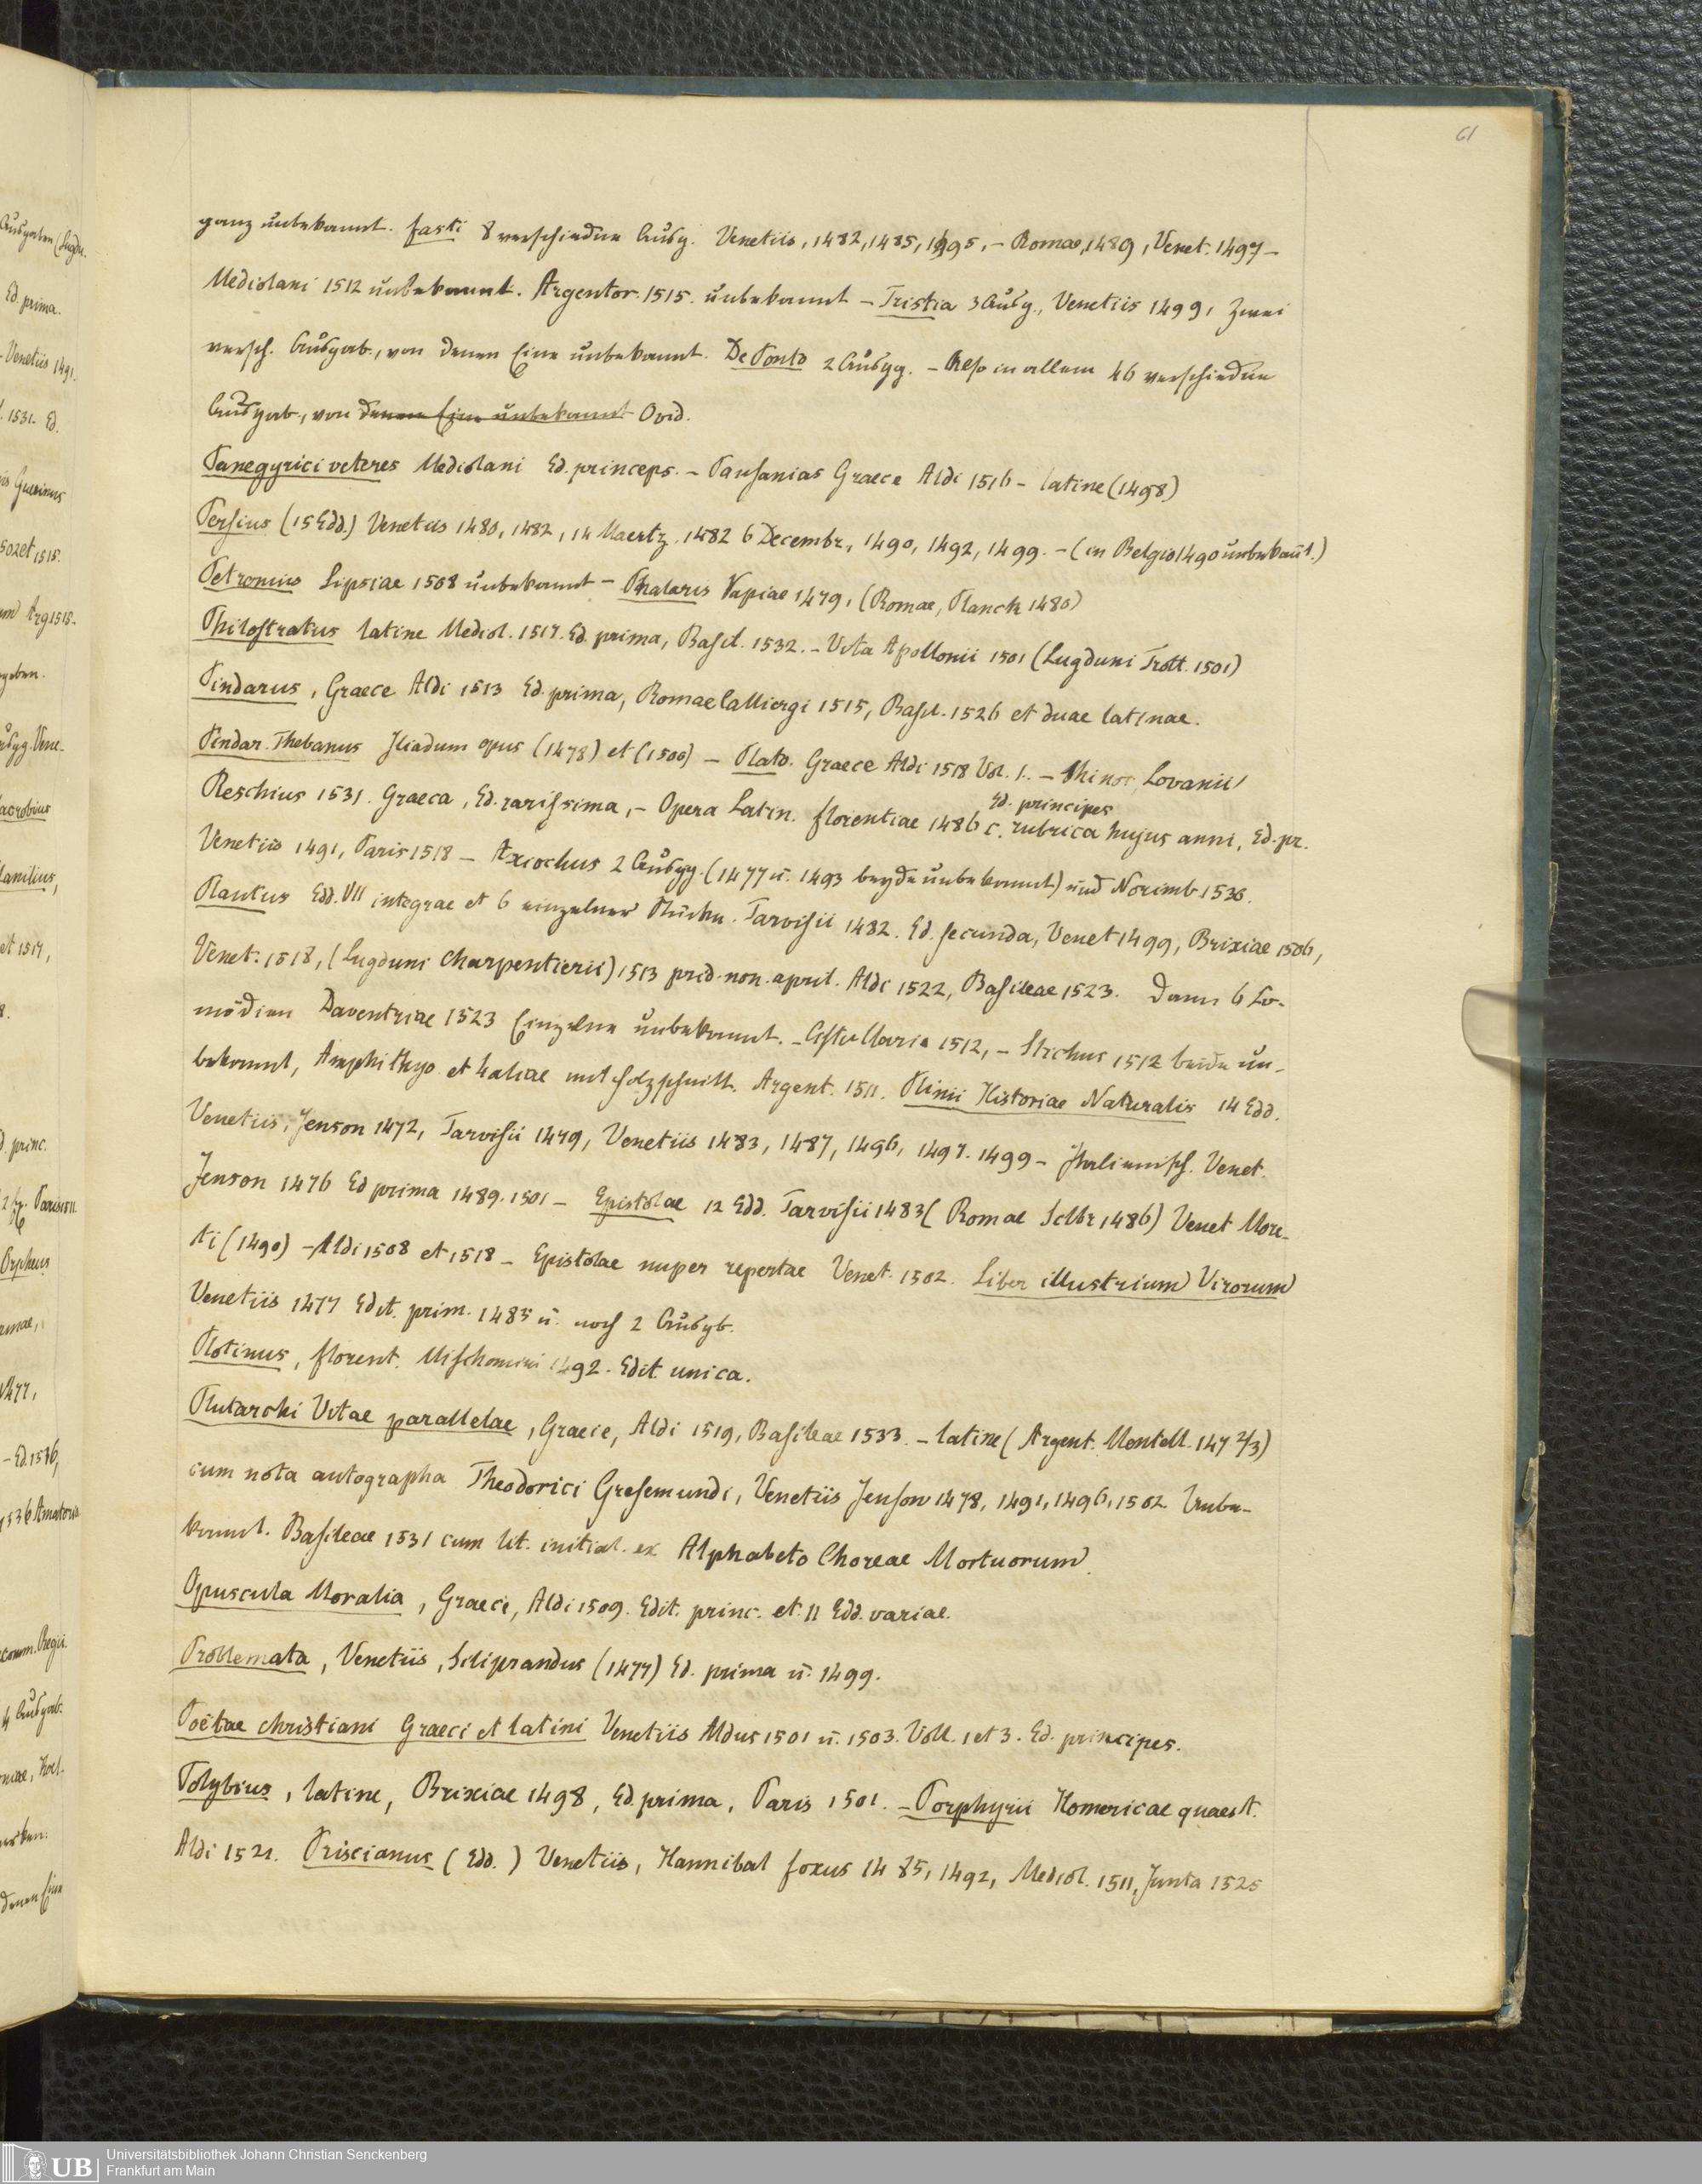 61
ganz unbekannt. fasti 8 verschiedene Ausg. Venetiis, 1482, 1485, 1495, - Romae, 1489, Venet. 1497 -
Mediolani 1512 unbekannt. Argentor. 1515. unbekannt - Tristia 3 Ausg., Venetiis 1499, zwei
versch. Ausgab., von denen Eine unbekannt. De Ponto 2 Ausgg. - Also in allem 46 verschiedne
Ausgab., von denen Eine unbekannt Ovid.
Panegyrici veteres Mediolani Ed. princeps. - Pausanias Graece Aldi 1516 - latine (1498)
Persius (15 Edd.) Venetiis 1480, 1482, 14 Maertz, 1482 6 Decembr, 1490, 1492, 1499. - (in Belgio 1490 unbekañt.)
Petronius Lipsiae 1508 unbekannt - Phalaris Papiae 1479, (Romae, Planck 1480)
Philostratus latine Mediol. 1517. Ed. prima, Basil. 1532. - Vita Apollonii 1501 (Lugduni Trott. 1501)
Pindarus, Graece Aldi 1513 Ed. prima, Romae Calliergi 1515, Basil. 1526 et duae latinae.
Pindar. Thebanus Iliadum opus (1478) et (1500) - Plato. Graece Aldi 1518 Vol. 1. - Minos, Lovanii,
Reschius 1531. Graeca, Ed. rarissima, - Opera Latin. florentiae 1486 c. rubrica hujus anni, Ed. pr.
Ed. principes
Venetiis 1491, Paris 1518 - Axiochus 2 Ausgg. (1477 u. 1493 beyde unbekannt) und Norimb 1530.
Plautus Edd. VII integrae et 6 einzelner Stücke. Tarvisii 1482. Ed. secunda, Venet 1499, Brixiae 1506,
Venet: 1518, (Lugduni Charpentierii) 1513 prid. non. april. Aldi 1522, Basileae 1523. Dann 6 Co-
mödien Daventriae 1523 Einzelne unbekannt. - Cistellaria 1512, - Stichus 1512 beide un-
bekannt, Amphithyo et Haliae mit Holzschnitt. Argent. 1511. Plinii Historiae Naturalis 14 Edd.
Venetiis, Jenson 1472, Tarvisii 1479, Venetiis 1483, 1487, 1496, 1497. 1499 - Italienisch. Venet.
Jenson 1476 Ed prima 1489. 1501 - Epistolae 12 Edd. Tarvisii 1483 (Romae Silbr 1486) Venet More-
ti (1490) - Aldi 1508 et 1518 - Epistolae nuper repertae Venet. 1502. Liber illustrium Virorum
Venetiis 1477 Edit. prim. 1485 u. noch 2 Ausgb.
Plotinus, florent. Mischomini 1492. Edit. unica.
Plutarchi Vitae parallelae, Graece, Aldi 1519, Basileae 1533. - latine (Argent. Mentell. 147 2/3)
cum nota autographa Theodorici Gresemundi, Venetiis Jenson 1478, 1491, 1496, 1502 Unbe-
kannt. Basileae 1531 cum lit. initial. ex Alphabeto Choreae Mortuorum.
Opuscula Moralia, Graece, Aldi 1509. Edit. princ. et 11 Edd. variae.
Problemata, Venetiis, Siliprandus (1477) Ed. prima u. 1499.
Poëtae christiani Graeci et latini Venetiis Aldus 1501 u. 1503. Voll. 1 et 3. Ed. principes.
Polybius, latine, Brixiae 1498, Ed. prima, Paris 1501. - Porphyrii Homericae quaest.
Aldi 1521. Priscianus (Edd. ) Venetiis, Hannibal foxus 1485, 1492, Mediol. 1511, Junta 1525
UB
Universitätsbibliothek Johann Christian Senckenberg
Frankfurt am Main